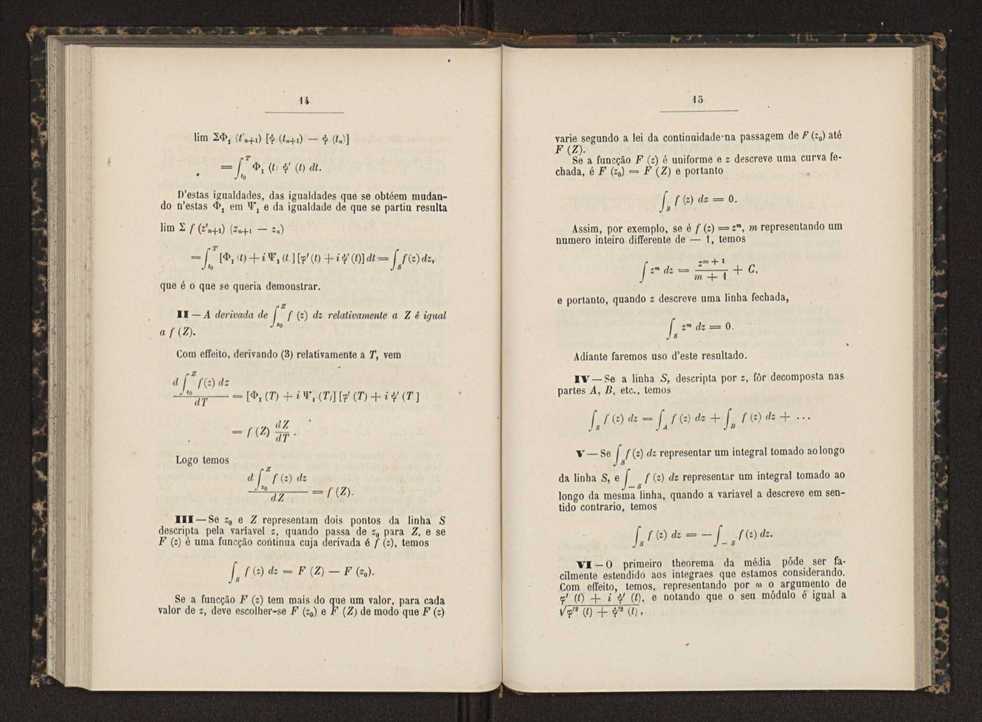 14
lim ΣΦ₁ (t'ₙ₊₁) [ψ (tₙ₊₁) — ψ (tₙ)]
= ∫_{t₀}^{T} Φ₁ (t) ψ' (t) dt.
D'estas igualdades, das igualdades que se obtéem mudan-
do n'estas Φ₁ em Ψ₁ e da igualdade de que se partiu resulta
lim Σ f (z'ₙ₊₁) (zₙ₊₁ — zₙ)
= ∫_{t₀}^{T} [Φ₁ (t) + i Ψ₁ (t)] [φ' (t) + i ψ' (t)] dt = ∫_S f (z) dz,
que é o que se queria demonstrar.
II — A derivada de ∫_{z₀}^{Z} f (z) dz relativamente a Z é igual
a f (Z).
Com effeito, derivando (3) relativamente a T, vem
d ∫_{z₀}^{Z} f (z) dz / dT = [Φ₁ (T) + i Ψ₁ (T)] [φ' (T) + i ψ' (T)]
= f (Z) dZ / dT .
Logo temos
d ∫_{z₀}^{Z} f (z) dz / dZ = f (Z).
III — Se z₀ e Z representam dois pontos da linha S
descripta pela variavel z, quando passa de z₀ para Z, e se
F (z) é uma funcção continua cuja derivada é f (z), temos
∫_S f (z) dz = F (Z) — F (z₀).
Se a funcção F (z) tem mais do que um valor, para cada
valor de z, deve escolher-se F (z₀) e F (Z) de modo que F (z)
15
varie segundo a lei da continuidade na passagem de F (z₀) até
F (Z).
Se a funcção F (z) é uniforme e z descreve uma curva fe-
chada, é F (z₀) = F (Z) e portanto
∫_S f (z) dz = 0.
Assim, por exemplo, se é f (z) = zᵐ, m representando um
numero inteiro differente de — 1, temos
∫ zᵐ dz = zᵐ⁺¹ / m + 1 + C,
e portanto, quando z descreve uma linha fechada,
∫_S zᵐ dz = 0.
Adiante faremos uso d'este resultado.
IV — Se a linha S, descripta por z, fôr decomposta nas
partes A, B, etc., temos
∫_S f (z) dz = ∫_A f (z) dz + ∫_B f (z) dz + ...
V — Se ∫_S f (z) dz representar um integral tomado ao longo
da linha S, e ∫_{— S} f (z) dz representar um integral tomado ao
longo da mesma linha, quando a variavel a descreve em sen-
tido contrario, temos
∫_S f (z) dz = — ∫_{— S} f (z) dz.
VI — O primeiro theorema da média póde ser fa-
cilmente estendido aos integraes que estamos considerando.
Com effeito, temos, representando por ω o argumento de
φ' (t) + i ψ' (t), e notando que o seu módulo é igual a
√φ'² (t) + ψ'² (t),